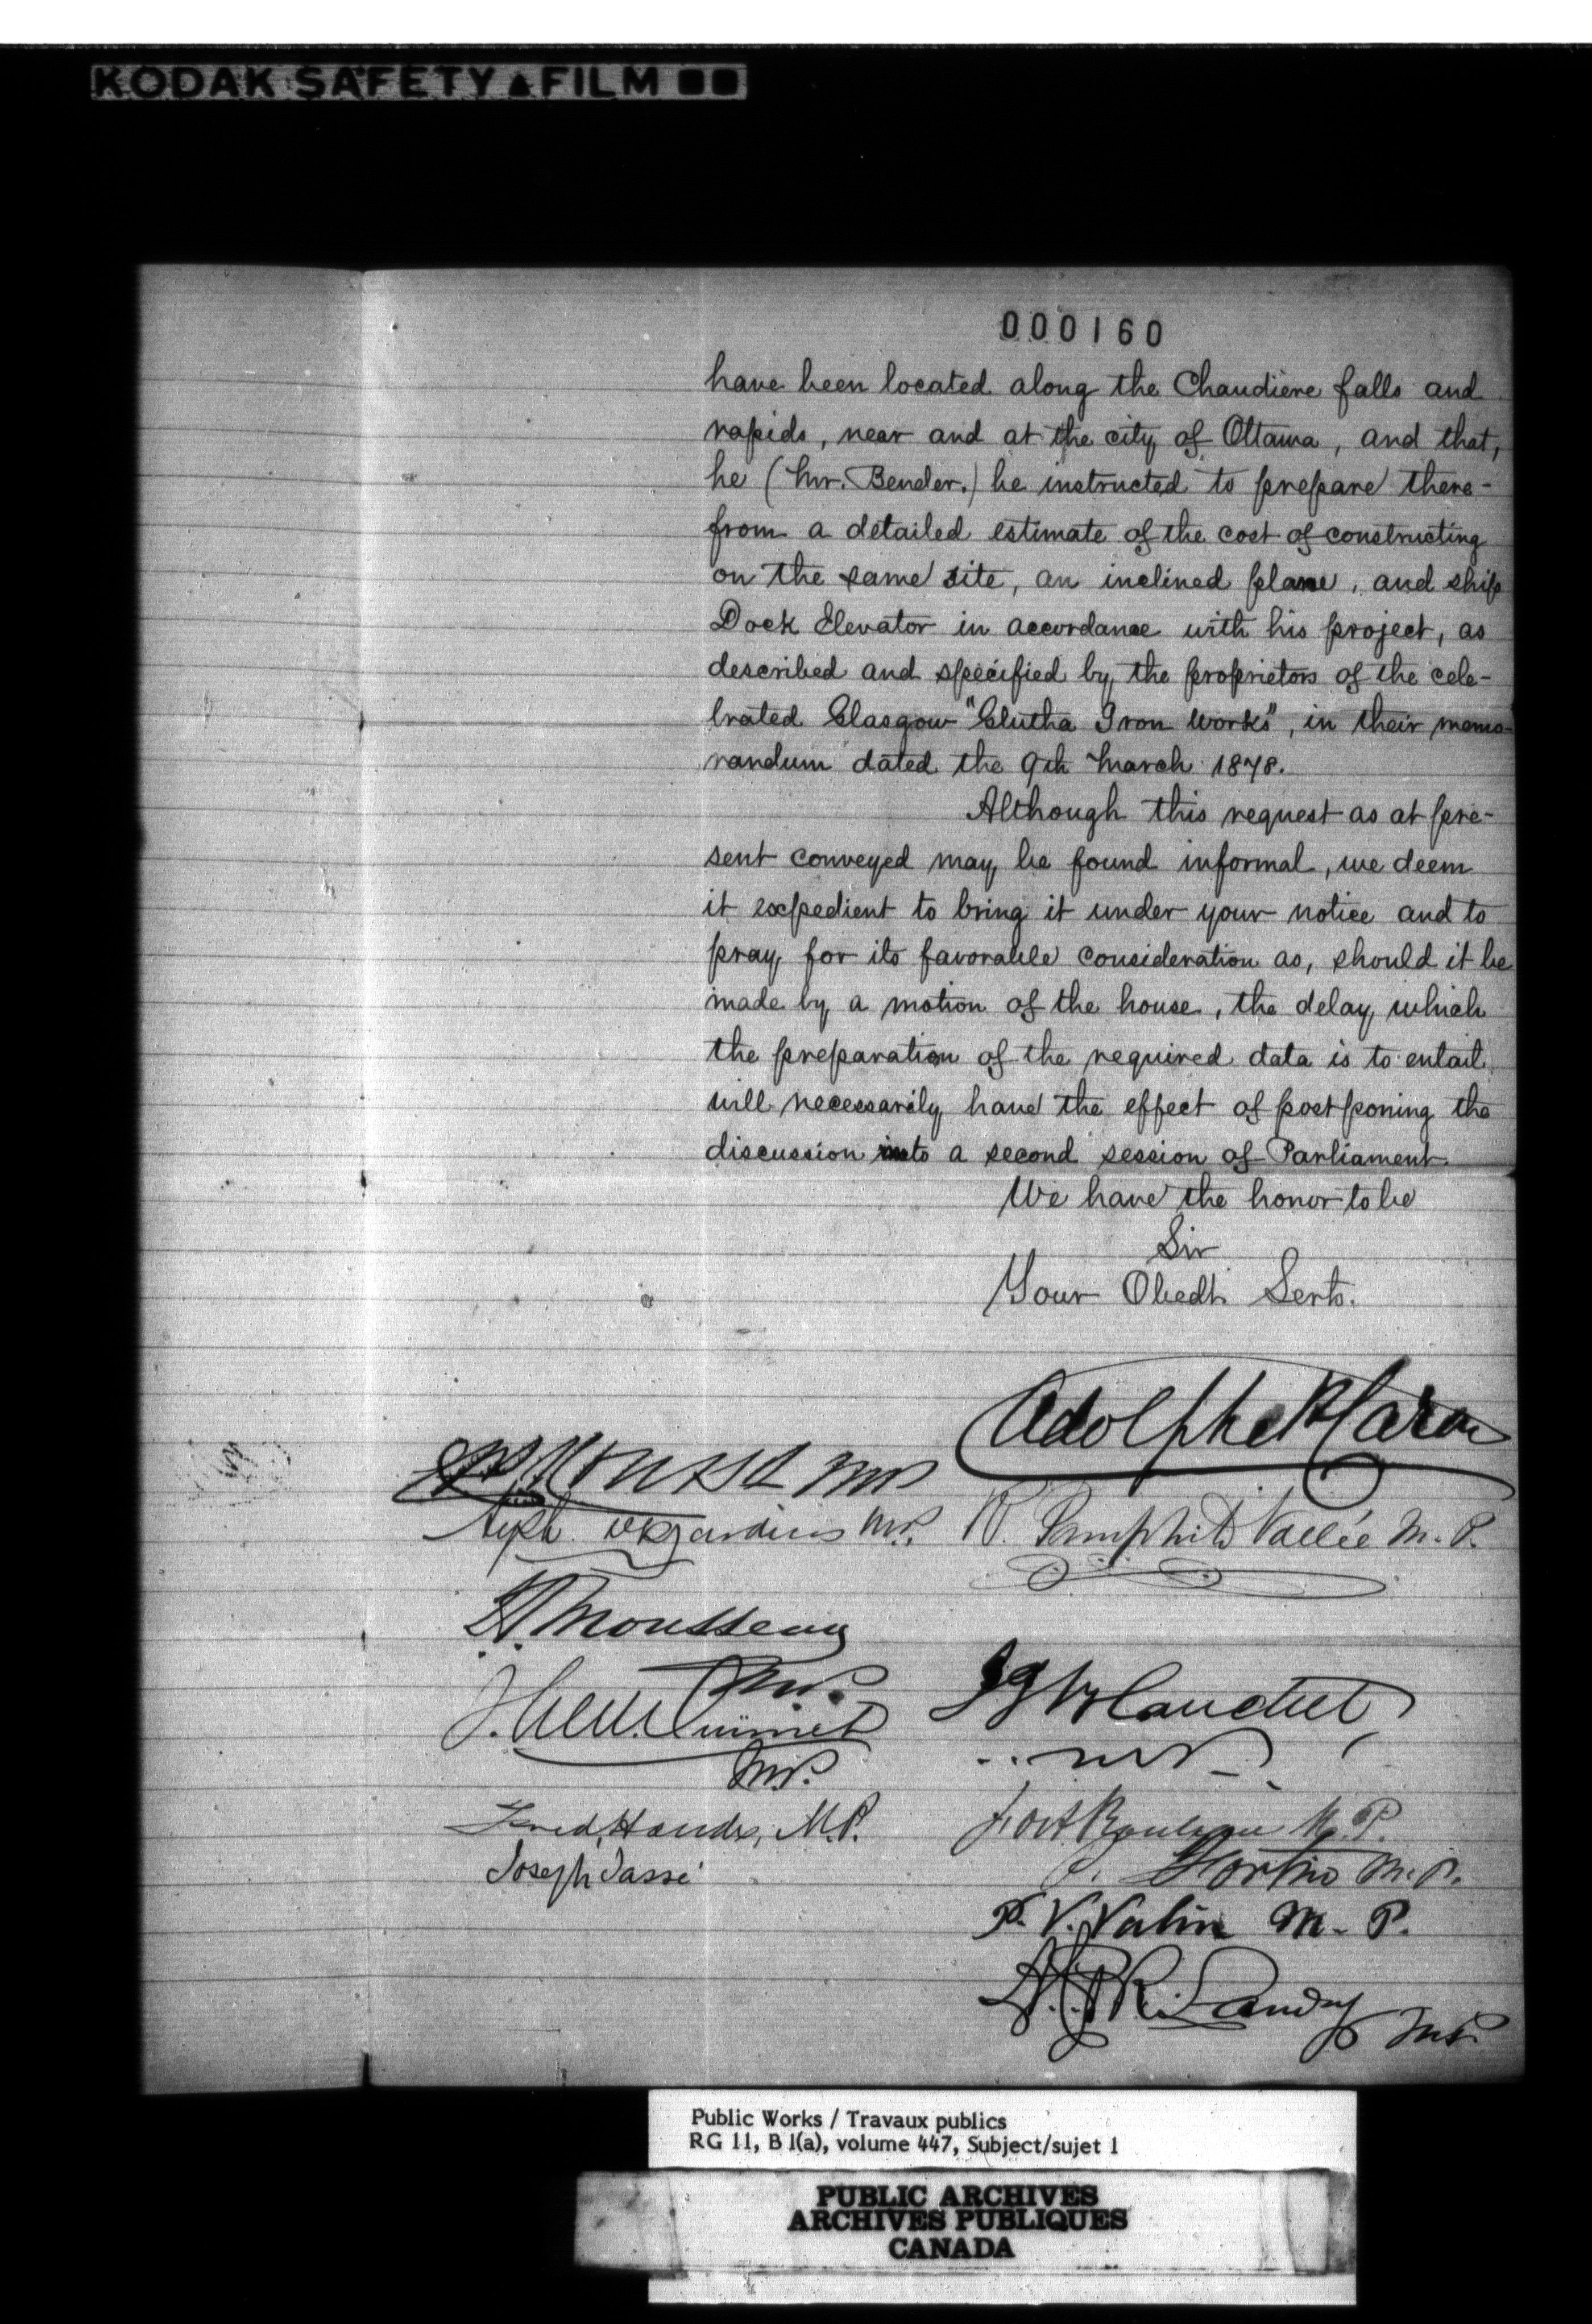 KODAK SAFETY FILM
000160
have been located along the Chaudière falls and
rapids, near and at the city of Ottawa, and that,
he (Mr. Bender.) be instructed to prepare there-
from a detailed estimate of the cost of constructing
on the same site, an inclined plane, and ship
Dock Elevator in accordance with his project, as
described and specified by the proprietors of the cele-
brated Glasgow "Clutha Iron Works", in their memo-
randum dated the 9th March 1878.
Although this request as at pre-
sent conveyed may be found informal, we deem
it expedient to bring it under your notice and to
pray for its favorable consideration as, should it be
made by a motion of the house, the delay which
the preparation of the required data is to entail
will necessarily have the effect of postponing the
discussion into a second session of Parliament.
We have the honor to be
Sir
Your Obedt. Serts.
Adolphe P Caron
MP
Desjardins MP.
P. Pamphile Vallée M.P.
Mousseau
MP.
J. Ald. Ouimet
MP.
J G Blanchet
MP.
Fred, Houde, M.P.
Joseph Tassé
Rouleau M.P.
P. Fortin M.P.
P. V. Valin M. P.
A. P. R. Landry MP.
Public Works / Travaux publics
RG 11, B 1(a), volume 447, Subject/sujet 1
PUBLIC ARCHIVES
ARCHIVES PUBLIQUES
CANADA